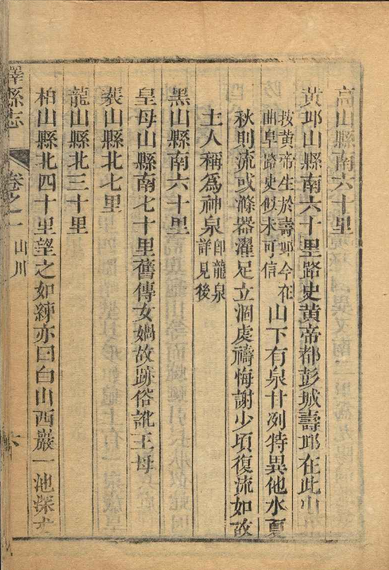 高山縣南六十里
黄邱山縣南六十里路史黄帝都彭城壽邱在此山
按黄帝生於壽邱今在
曲阜路史似未可信
山下有泉甘冽特異他水夏
秋則流或滌器濯足立涸處禱悔謝少頃復流如故
土人稱爲神泉
卽龍泉
詳見後
黑山縣南六十里
皇母山縣南七十里舊傳女媧故跡俗訛王母
裴山縣北七里
龍山縣北三十里
柏山縣北四十里望之如練亦曰白山西巖一池深
嶧縣志
卷之一
山川
六